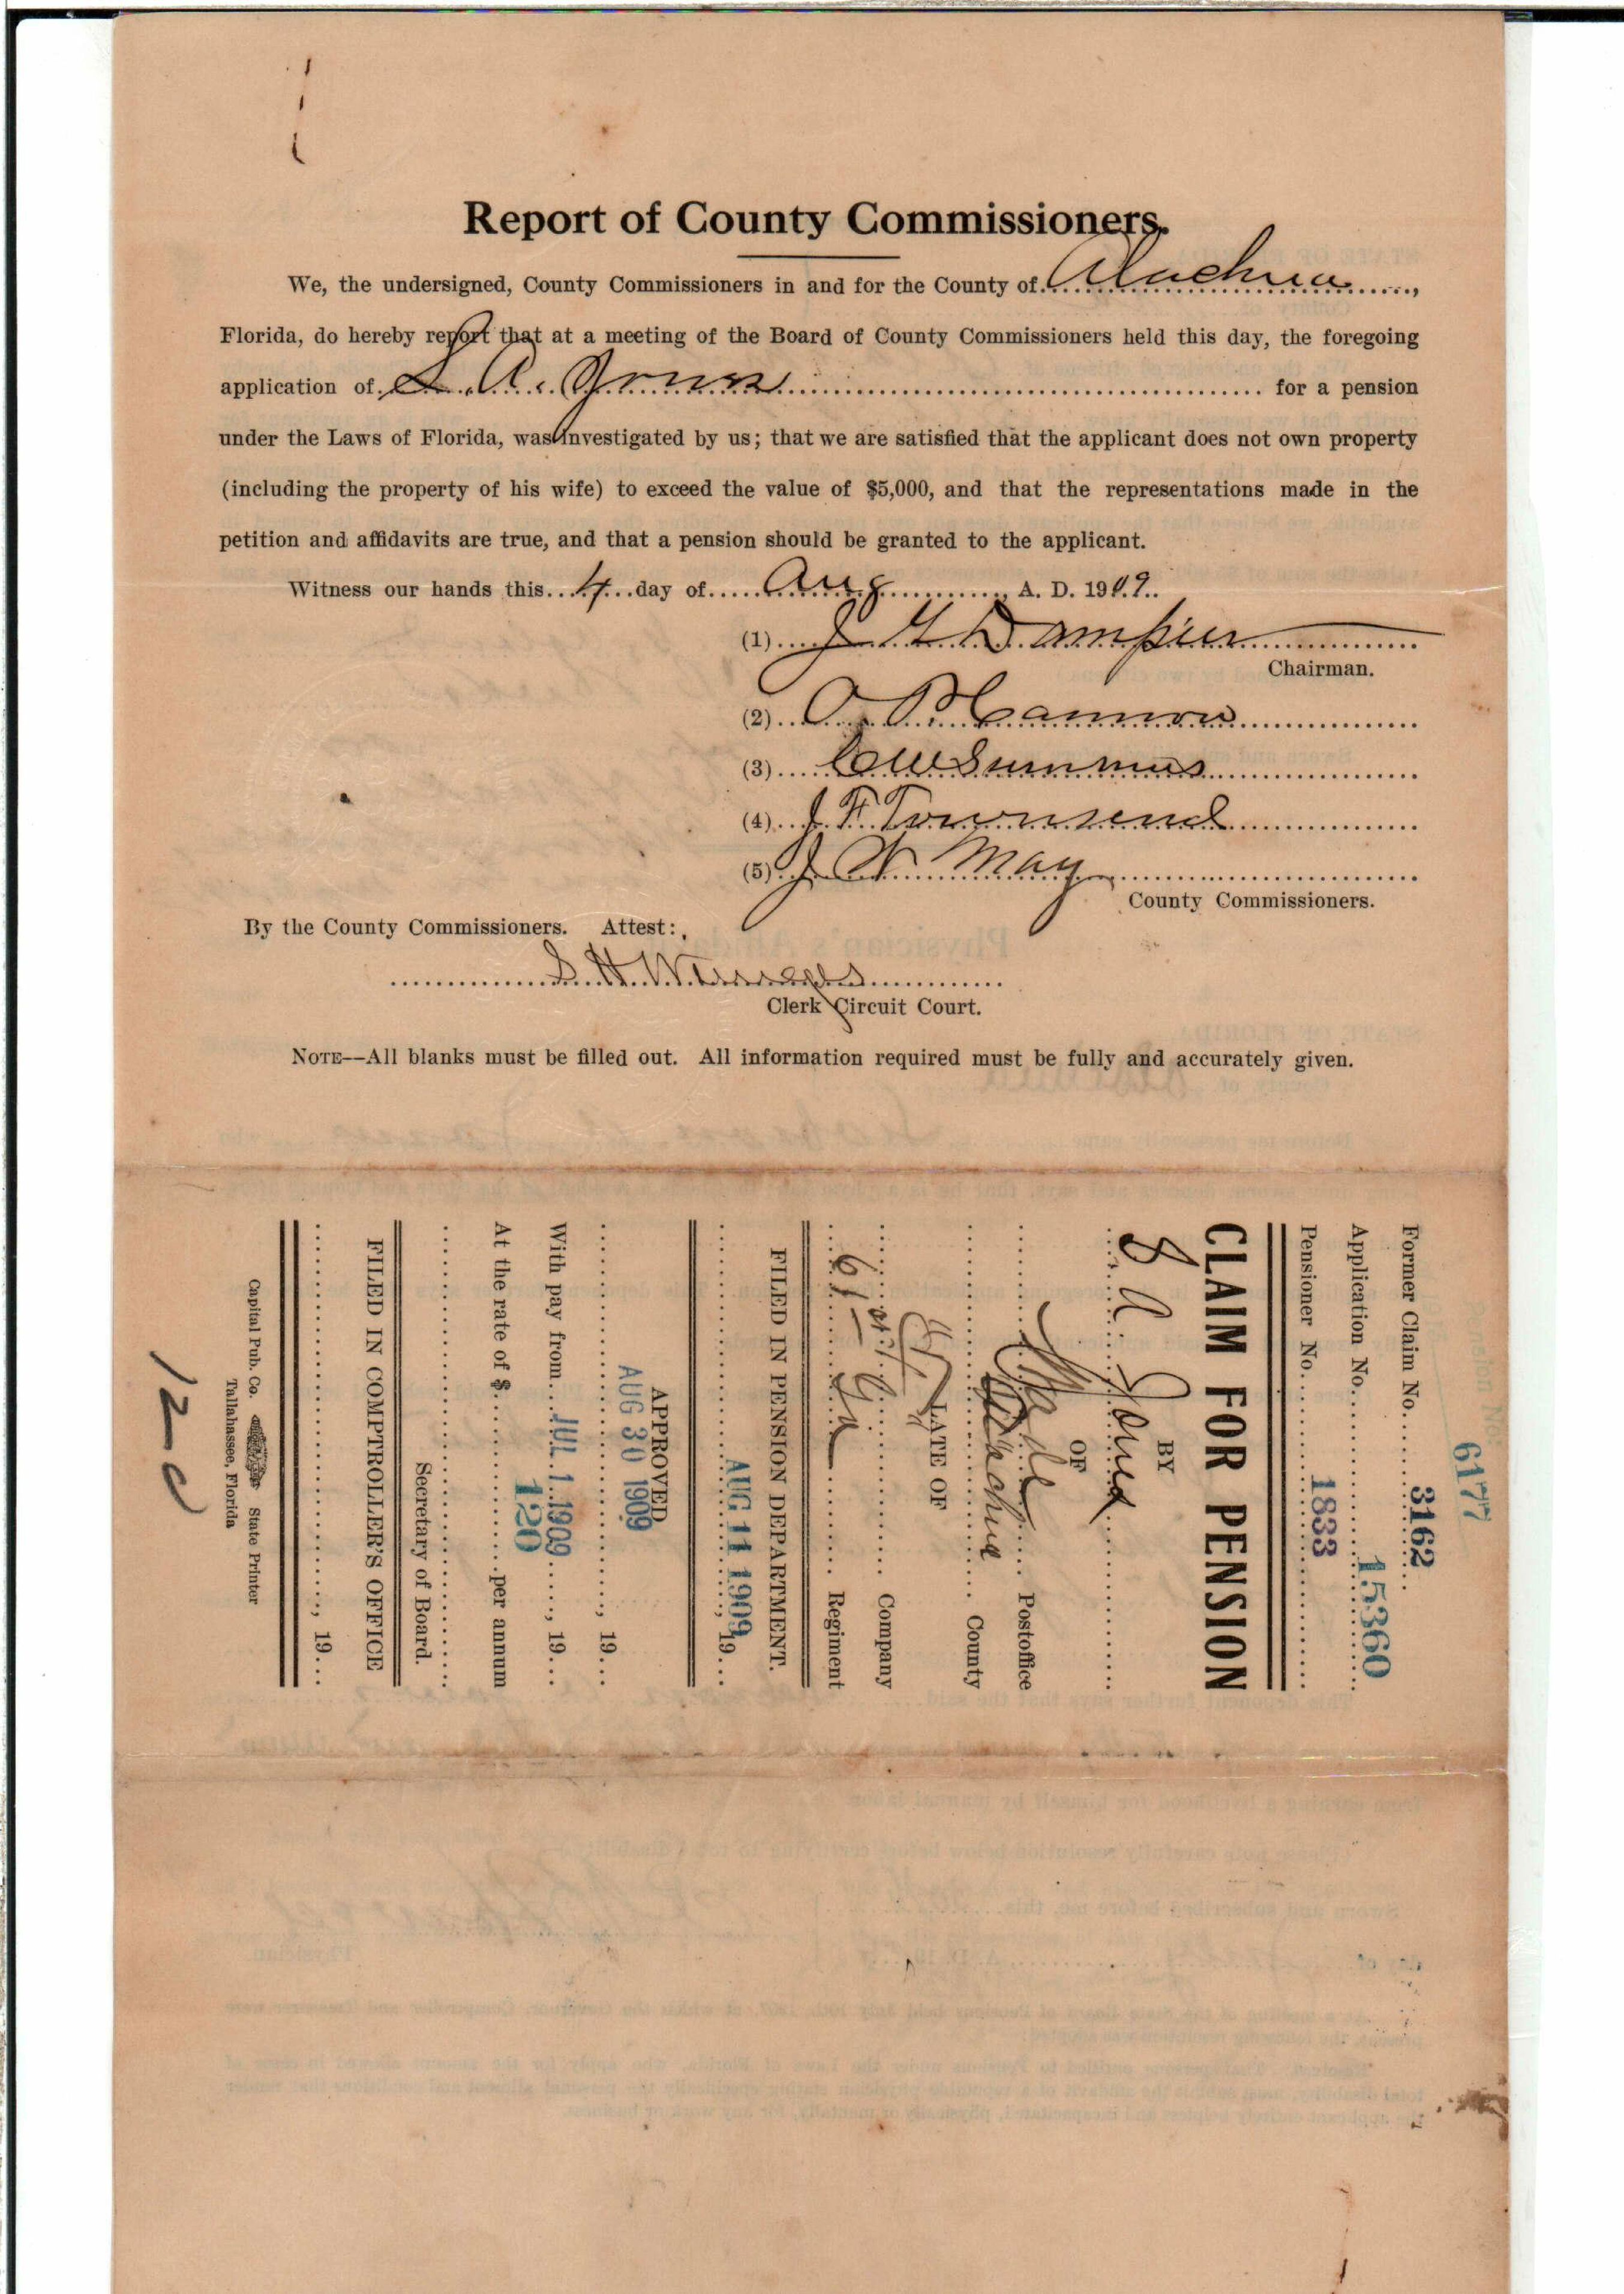 Report of County Commissioners.
We, the undersigned, County Commissioners in and for the County of Alachua,
Florida, do hereby report that at a meeting of the Board of County Commissioners held this day, the foregoing
application of S. A. Jones for a pension
under the Laws of Florida, was investigated by us; that we are satisfied that the applicant does not own property
(including the property of his wife) to exceed the value of $5,000, and that the representations made in the
petition and affidavits are true, and that a pension should be granted to the applicant.
Witness our hands this 4 day of Aug, A. D. 1909.
(1) J G Dampier
Chairman.
(2) O. P. Cannon
(3) C W Summers
(4) J. F. Townsend
(5) J W May
County Commissioners.
By the County Commissioners. Attest:
S. H. Wienges
Clerk Circuit Court.
NOTE—All blanks must be filled out. All information required must be fully and accurately given.
Pension No.
6177
Former Claim No. 3162
Application No. 15360
Pensioner No. 1833
CLAIM FOR PENSION
BY
S A Jones
OF
Postoffice
Alachua County
LATE OF
"H" Company
61st Ga Regiment
FILED IN PENSION DEPARTMENT.
AUG 11 1909, 19
APPROVED
AUG 30 1909
, 19
With pay from JUL 1 1909, 19
At the rate of $ 120 per annum
Secretary of Board.
FILED IN COMPTROLLER'S OFFICE
, 19
Capital Pub. Co. State Printer
Tallahassee, Florida
120